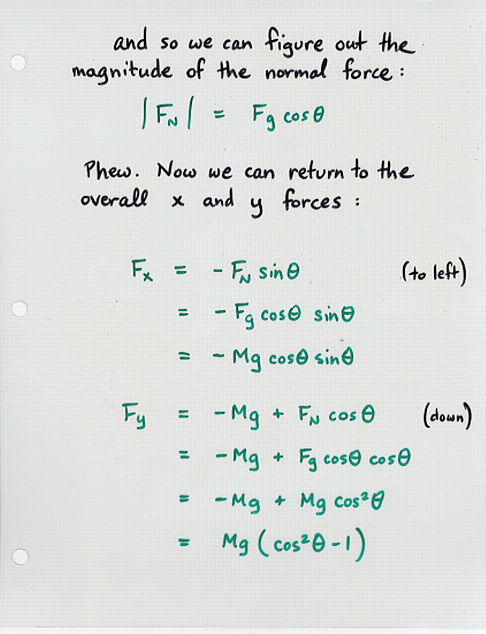 and so we can figure out the
magnitude of the normal force :
|F_N| = F_g cosθ
Phew. Now we can return to the
overall x and y forces :
F_x = - F_N sinθ (to left)
= - F_g cosθ sinθ
= - Mg cosθ sinθ
F_y = -Mg + F_N cosθ (down)
= -Mg + F_g cosθ cosθ
= -Mg + Mg cos²θ
= Mg (cos²θ - 1)